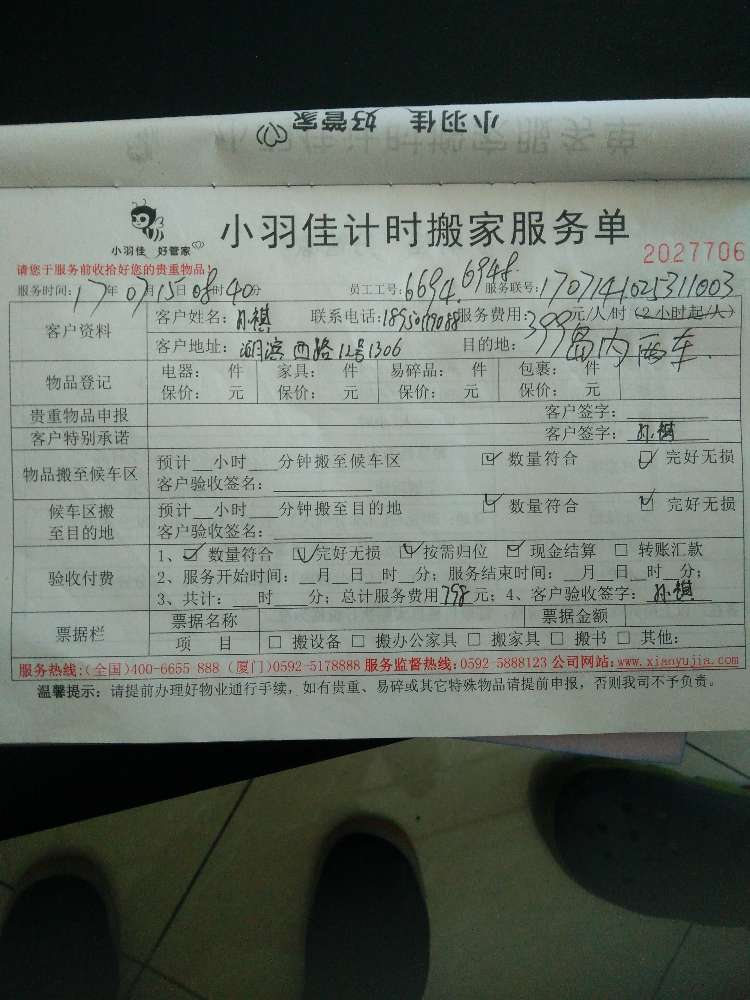 小羽佳 好管家
小羽佳计时搬家服务单
小羽佳 好管家
小羽佳计时搬家服务单
2027706
请您于服务前收拾好您的贵重物品!
服务时间: 17年07月15日08时40分 员工工号: 6694 6948 服务联号: 170714102531003
客户资料 客户姓名: 孙祺 联系电话: 服务费用: 399元/人/时 (2小时起/人)
客户地址: 湖滨西路12号1306 目的地: 岛内 两车
物品登记 电器: 件 家具: 件 易碎品: 件 包裹: 件
保价: 元 保价: 元 保价: 元 保价: 元
贵重物品申报 客户签字:
客户特别承诺 客户签字: 孙祺
物品搬至候车区 预计__小时___分钟搬至候车区 ☑ 数量符合 ☑ 完好无损
客户验收签名:
候车区搬至目的地 预计__小时___分钟搬至目的地 ☑ 数量符合 ☑ 完好无损
客户验收签名:
验收付费 1、☑ 数量符合 ☑ 完好无损 ☑ 按需归位 ☑ 现金结算 □ 转账汇款
2、服务开始时间: __月__日__时__分; 服务结束时间: __月__日__时__分;
3、共计: 时 分; 总计服务费用798元; 4、客户验收签字: 孙祺
票据栏 票据名称 票据金额
项 目 □ 搬设备 □ 搬办公家具 □ 搬家具 □ 搬书 □ 其他:
服务热线:(全国)400-6655 888 (厦门)0592-5178888 服务监督热线:0592-5888123 公司网站:www.xiaoyujia.com
温馨提示: 请提前办理好物业通行手续, 如有贵重、易碎或其它特殊物品请提前申报, 否则我司不予负责。